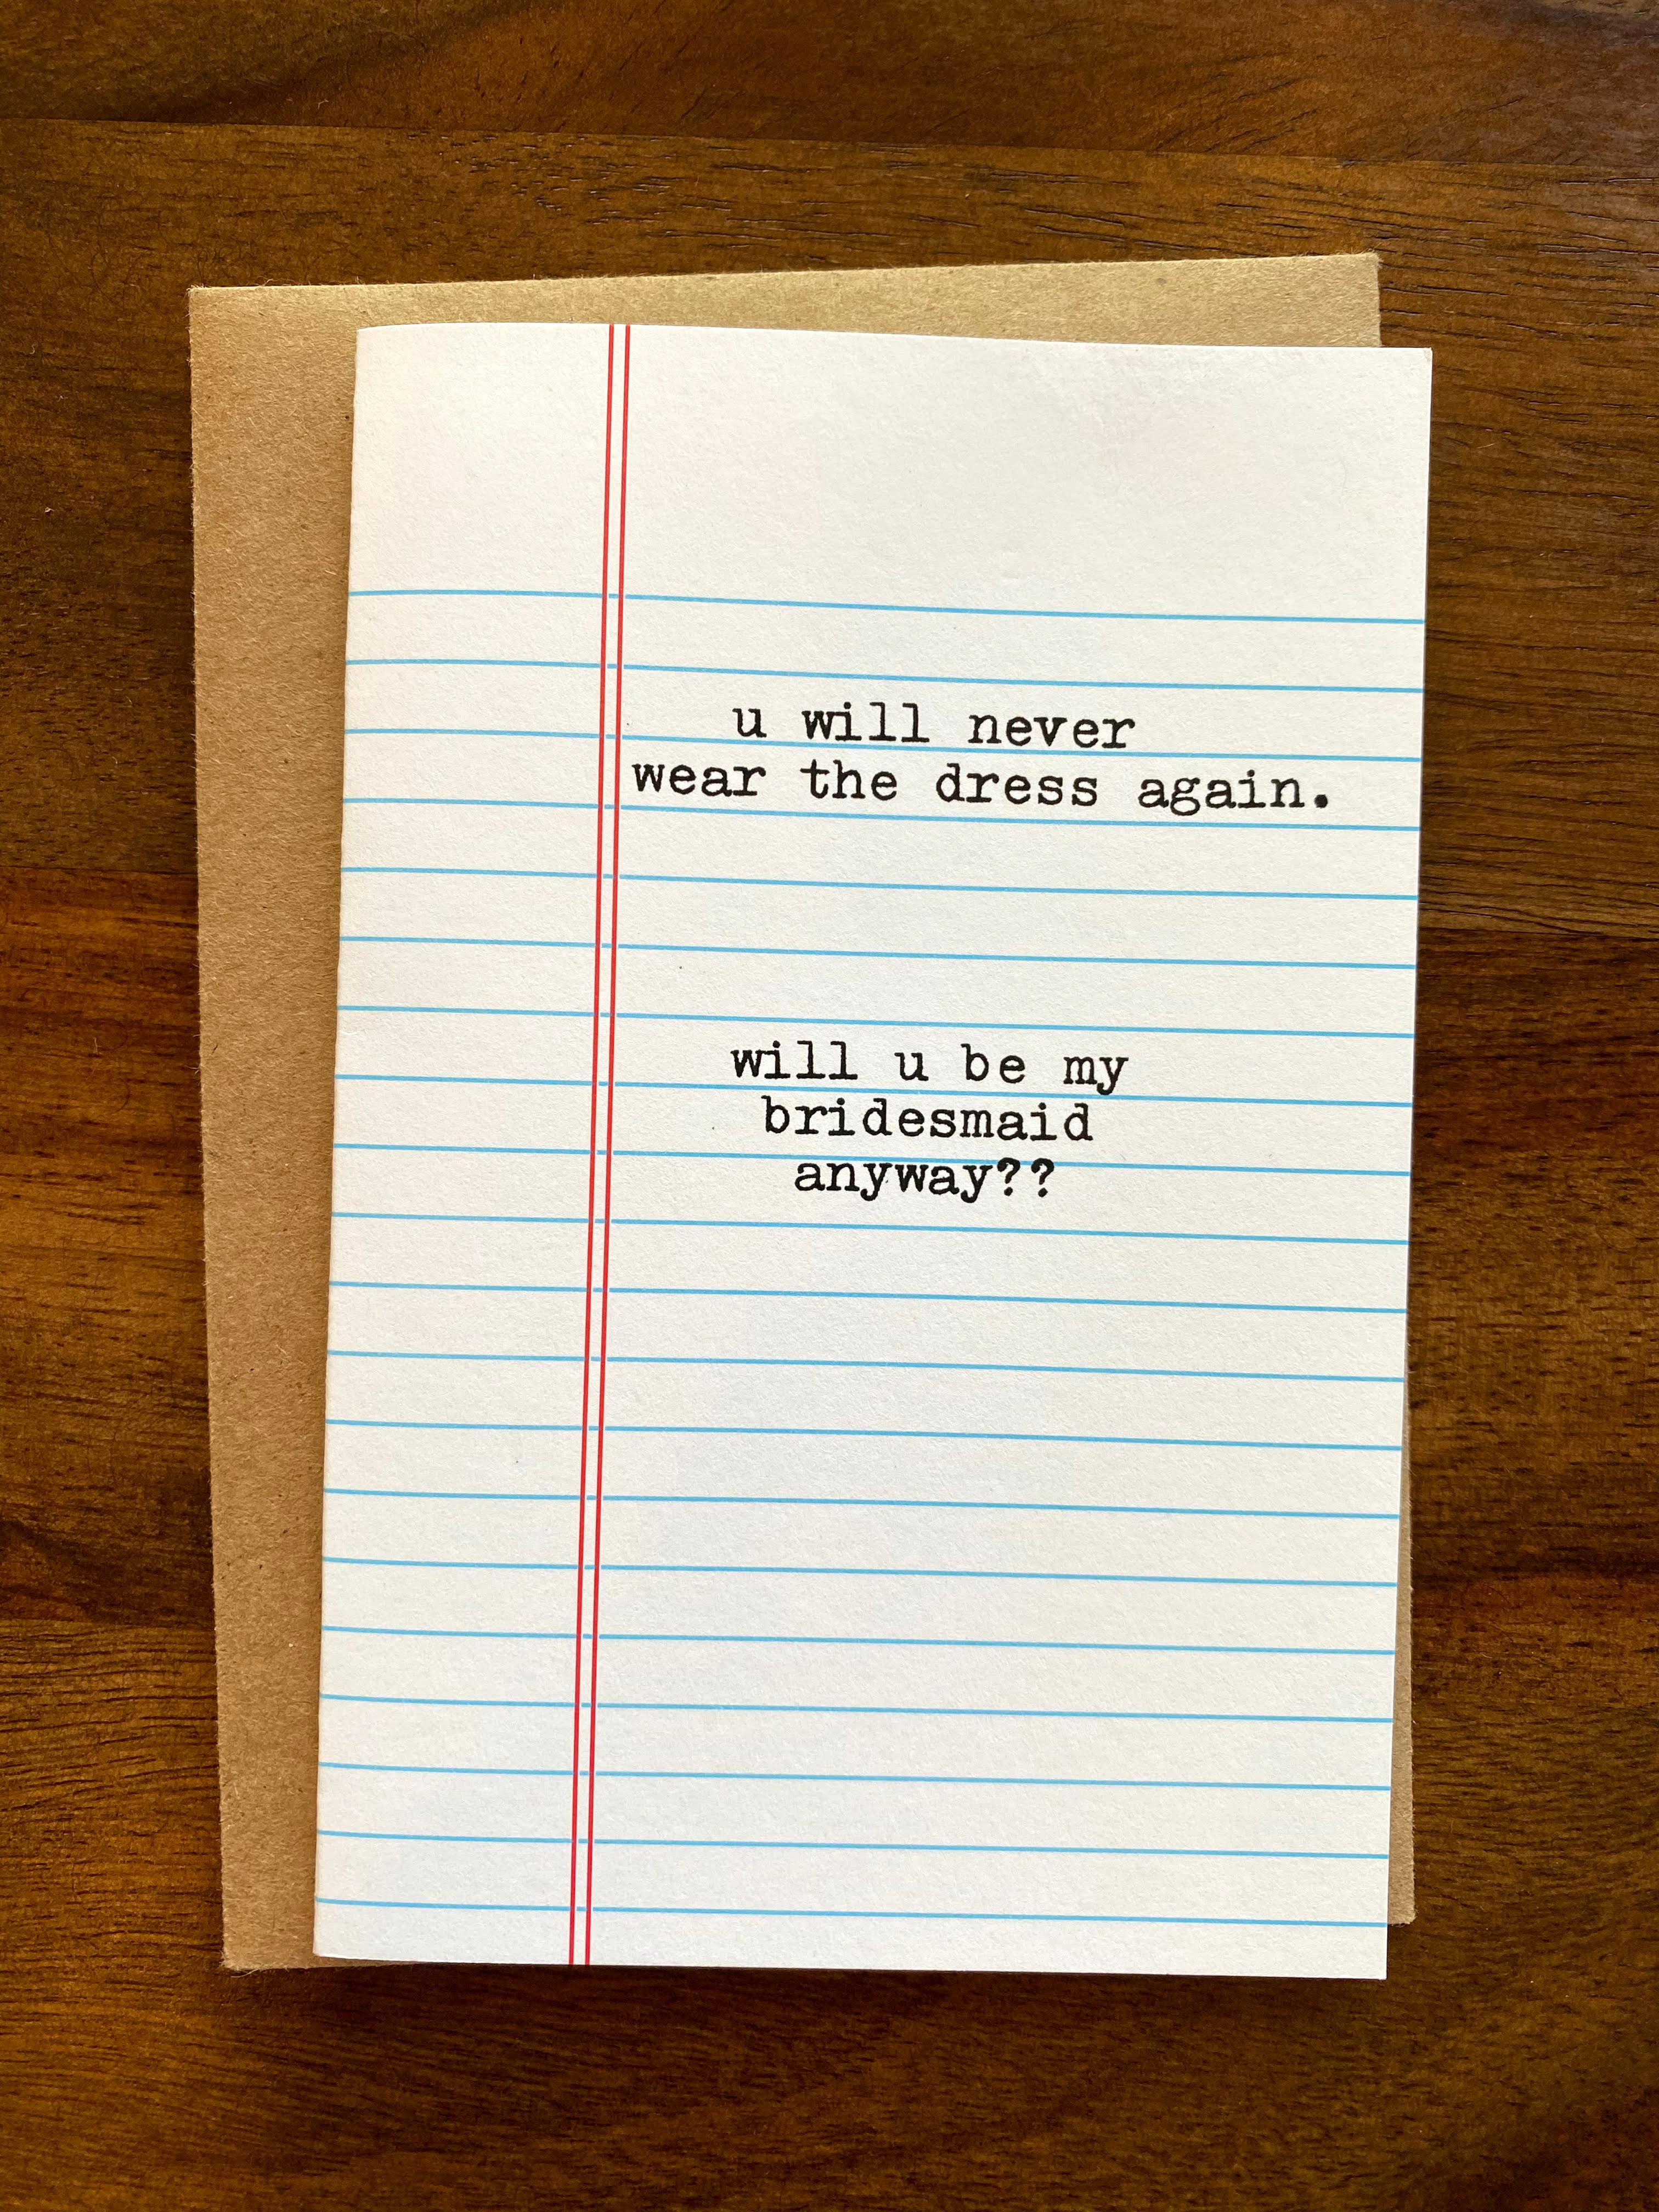 u will never
wear the dress again.
will u be my
bridesmaid
anyway??